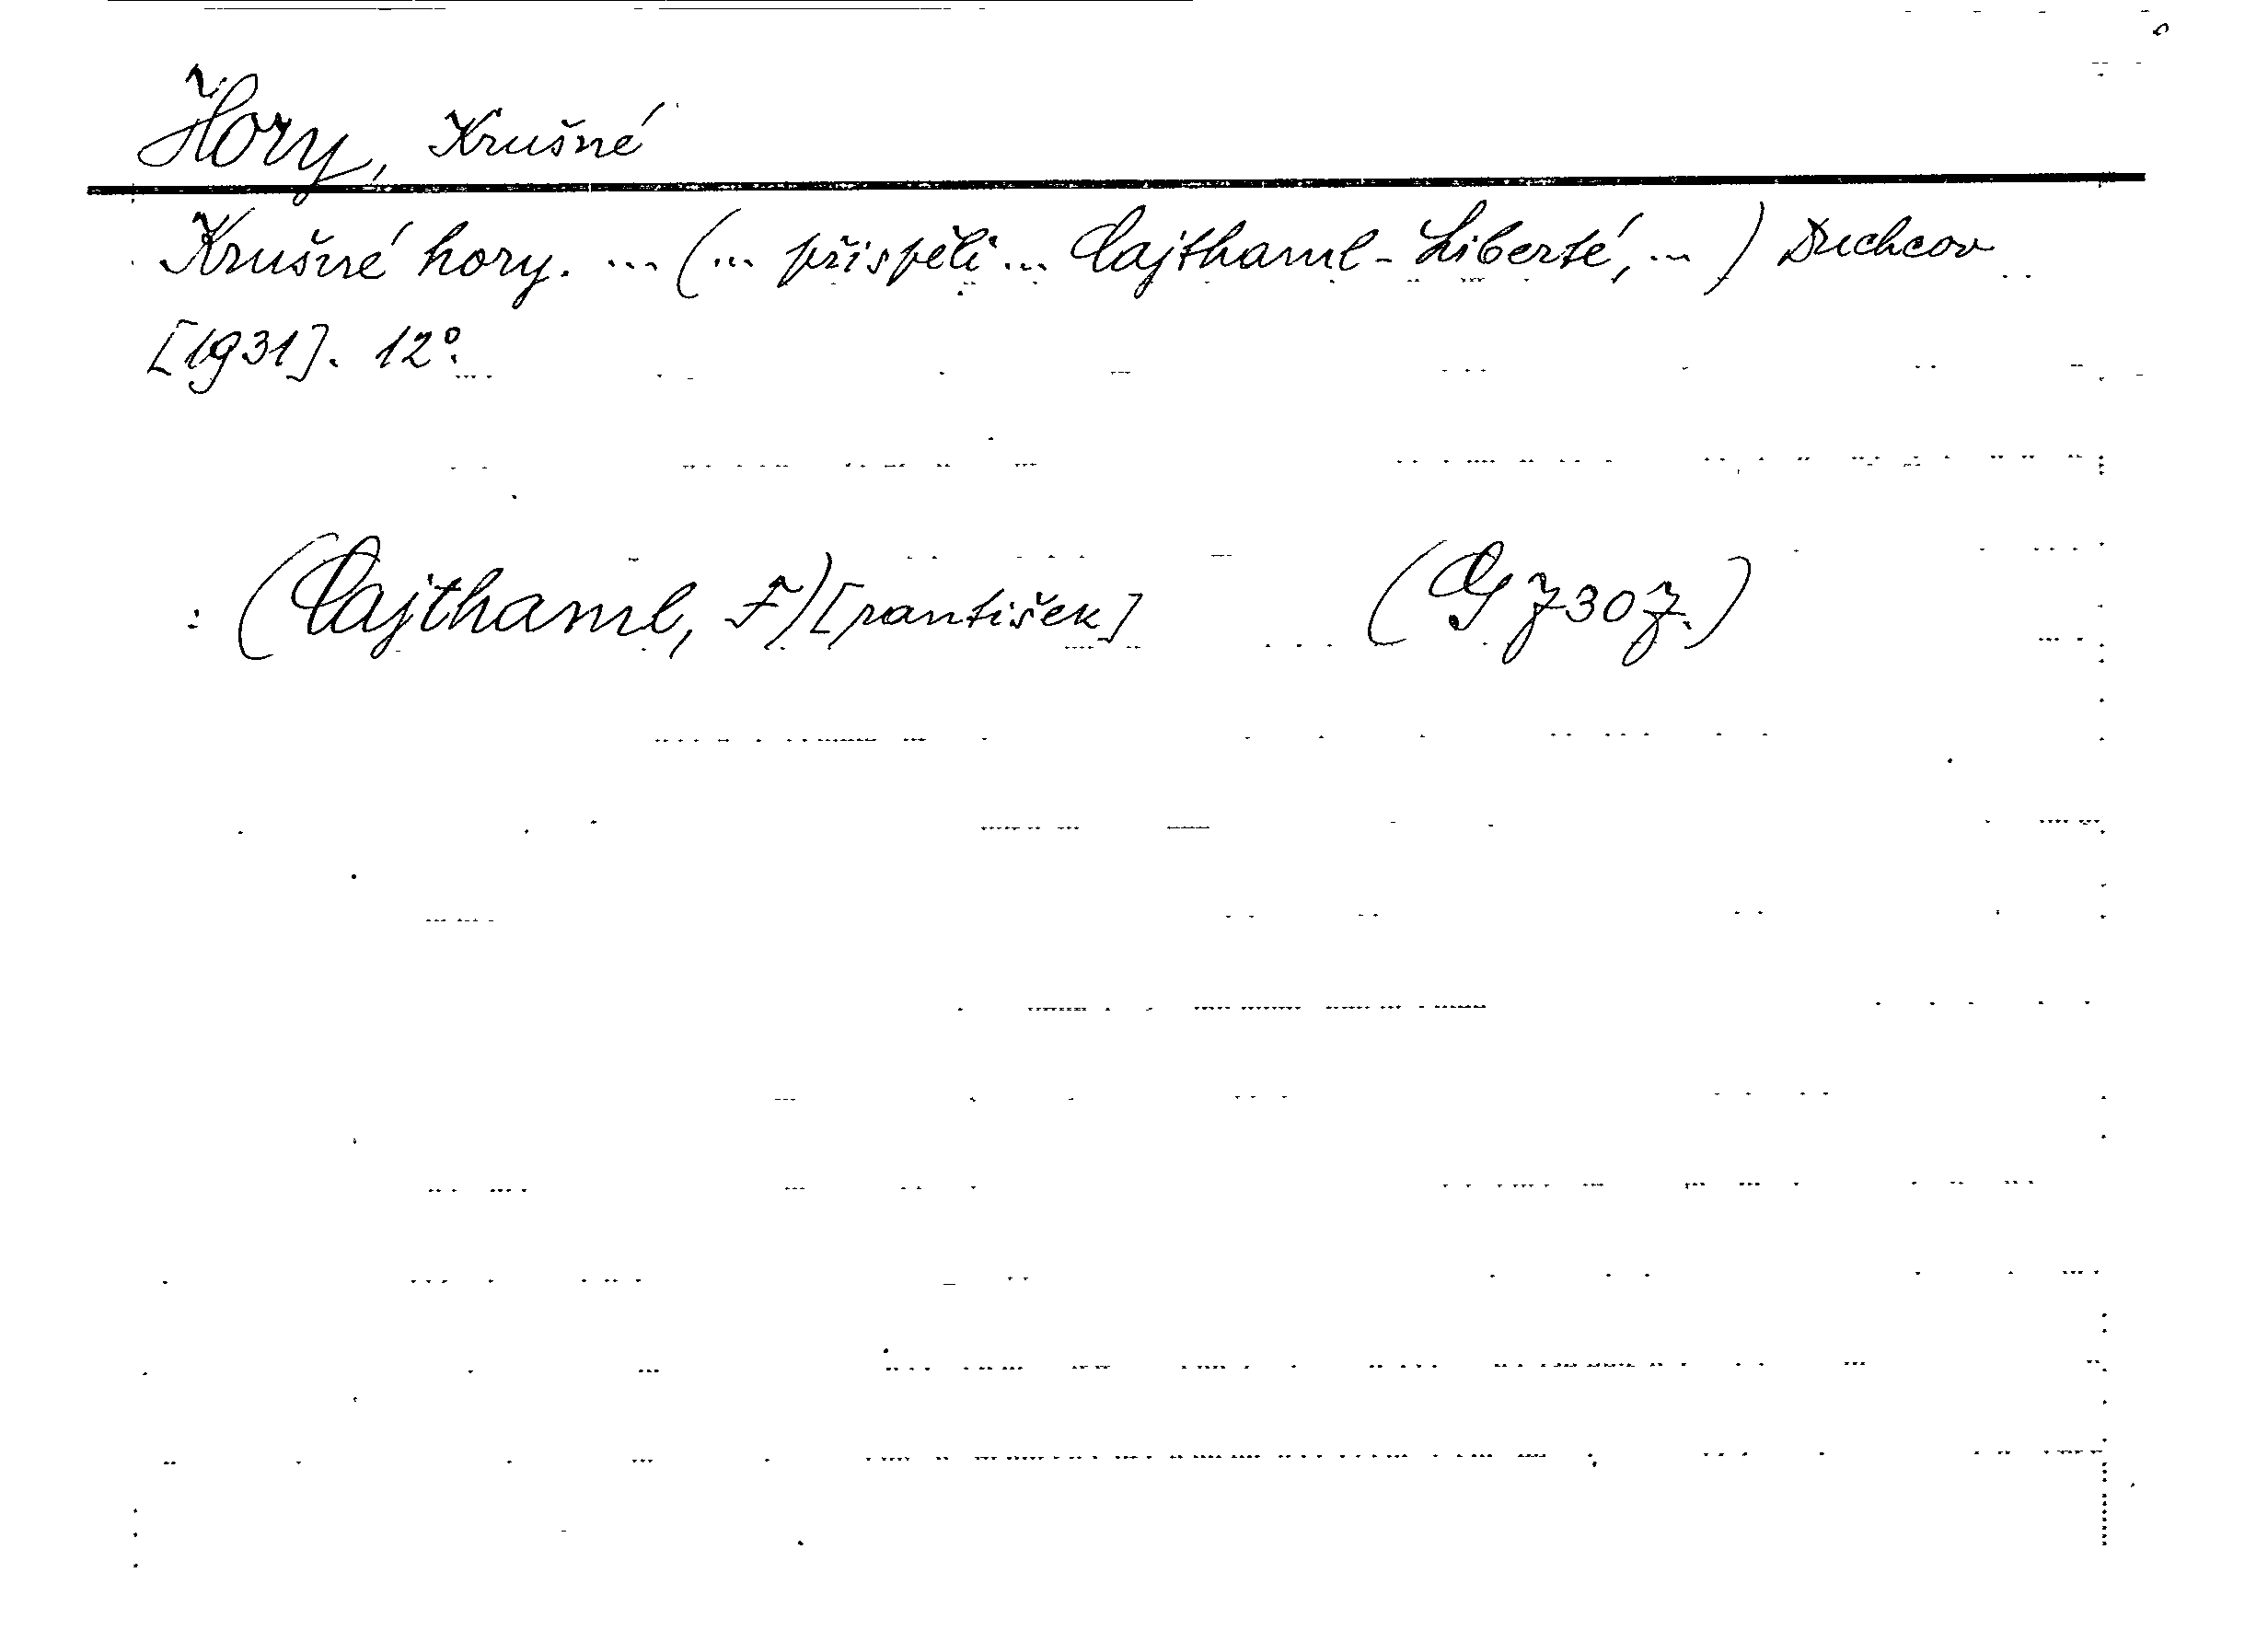 Hory, Krušné
Krušné hory. ... (... přispěli ... Cajthaml-Liberté, ...) Duchcov
[1931]. 12°.
: (Cajthaml, F)[rantišek] (G 7307.)